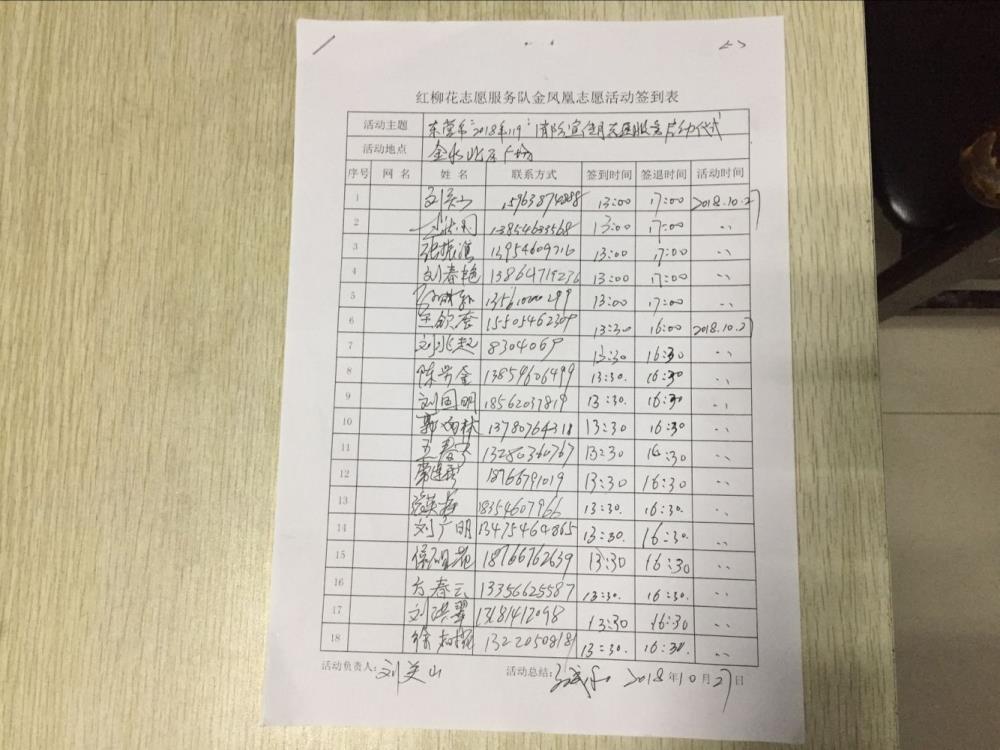 红柳花志愿服务队金凤凰志愿活动签到表
活动主题 东营市"2018年119"消防宣传月志愿服务启动仪式
活动地点 金水
序号 网 名 姓 名 联系方式 签到时间 签退时间 活动时间
1 刘美山 15963874888 13:00 17:00 2018.10.27
2 13854633568 13:00 17:00 〃
3 张振滨 13954609716 13:00 17:00 〃
4 刘春艳 13864719236 13:00 17:00 〃
5 13561000299 13:00 17:00 〃
6 王欣奎 15505462309 13:30 16:00 2018.10.27
7 刘兴起 8304069 13:30 16:30 〃
8 陈学金 13854606499 13:30. 16:30 〃
9 刘国明 18562037819 13:30. 16:30 〃
10 郭向林 13780764318 13:30 16:30 〃
11 王春 13280360767 13:30 16:30 〃
12 18766791019 13:30 16:30 〃
13 18354607966 13:30. 16:30. 〃
14 刘广明 13475464865 13:30. 16:30. 〃
15 18766762639 13:30 16:30 〃
16 方春云 13356625587 13:30. 16:30. 〃
17 刘洪翠 13181412098 13:30 16:30. 〃
18 徐 13220508181 13:30. 16:30. 〃
活动负责人:刘美山 活动总结: 2018年10月27日